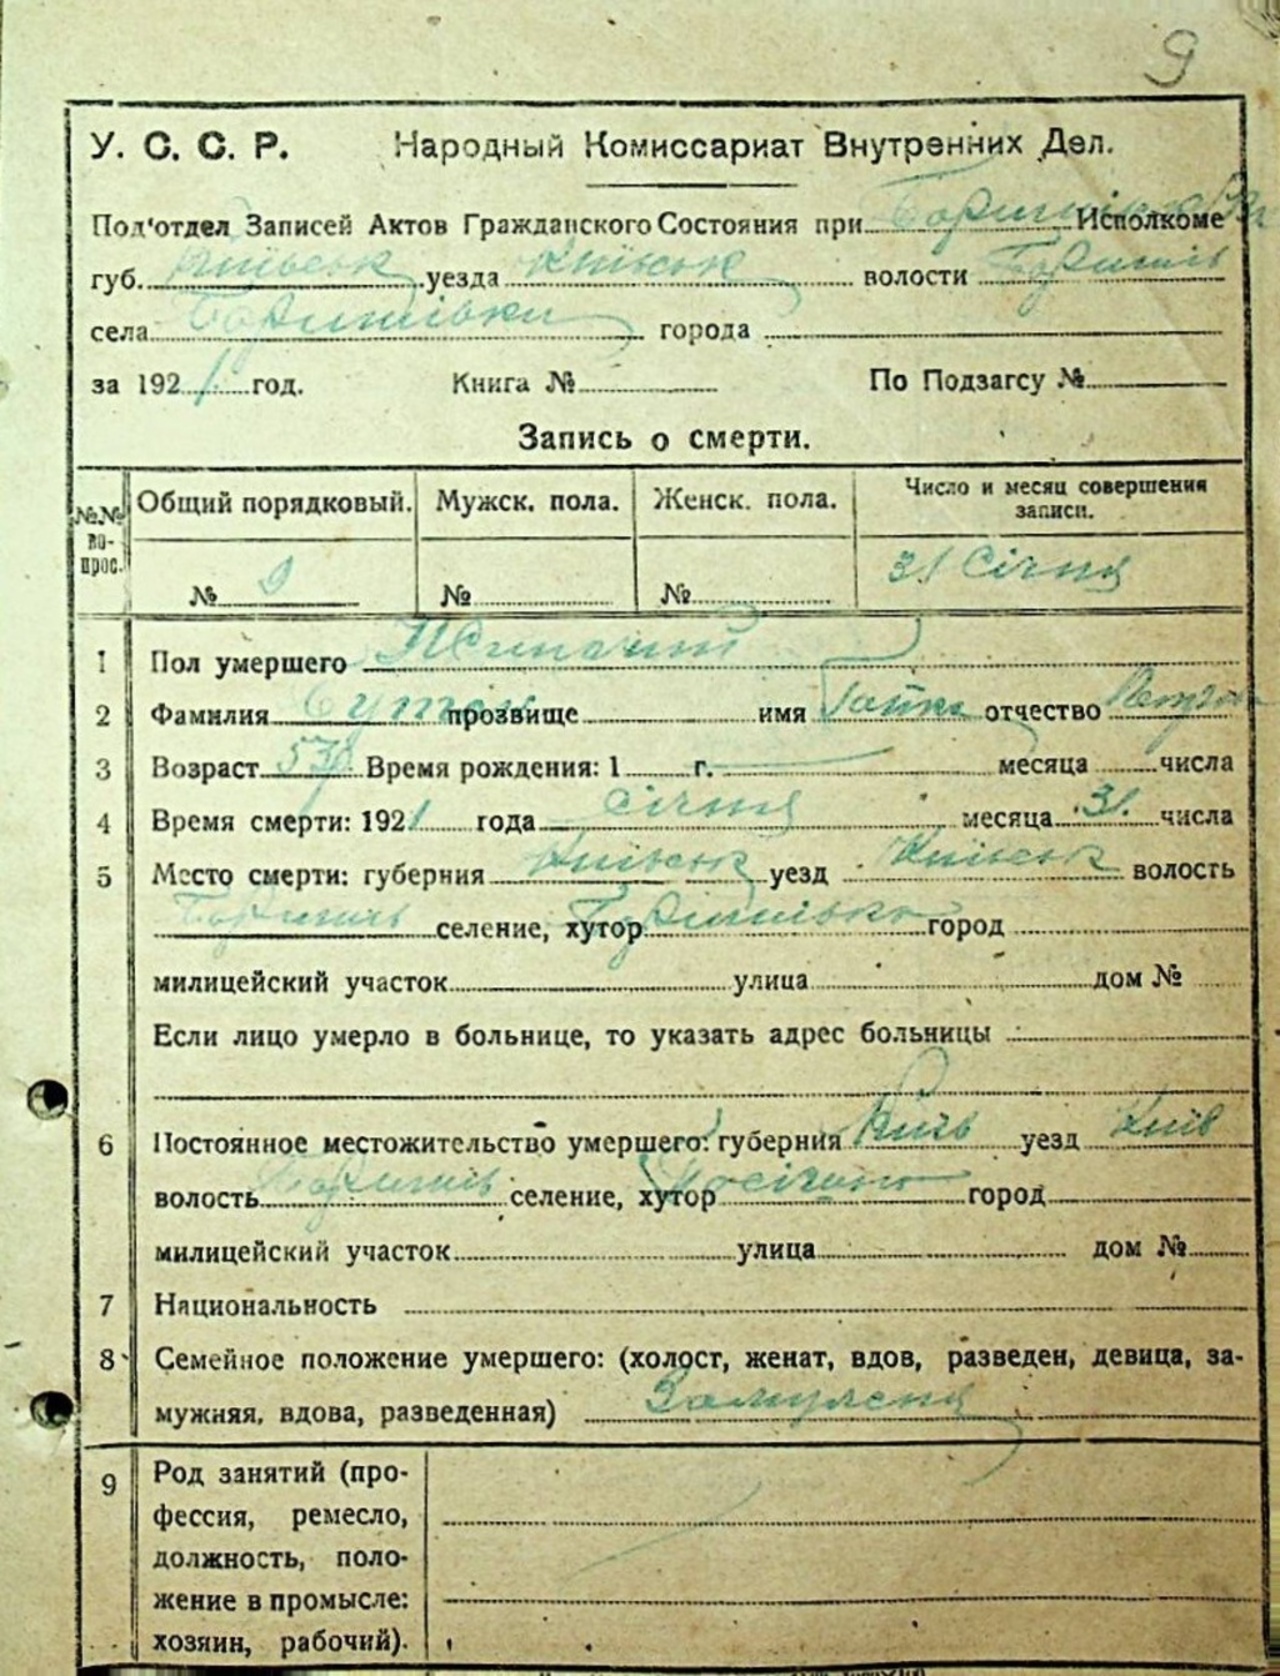 9
У. С. С. Р. Народный Комиссариат Внутренних Дел.
Под'отдел Записей Актов Гражданского Состояния при Исполкоме
губ. Київськ уезда Київськ волости Бориспіль
села города
за 1921 год. Книга № По Подзагсу №
Запись о смерти.
№№ во-прос. Общий порядковый. Мужск. пола. Женск. пола. Число и месяц совершения записи.
№ 9 № № 31 Січня
1 Пол умершего Жиночий
2 Фамилия прозвище имя отчество
3 Возраст 53 Время рождения: 1 г. месяца числа
4 Время смерти: 1921 года січня месяца 31. числа
5 Место смерти: губерния Київськ уезд Київськ волость
Бориспіль селение, хутор город
милицейский участок улица дом №
Если лицо умерло в больнице, то указать адрес больницы
6 Постоянное местожительство умершего: губерния Київ уезд Київ
волость Бориспіль селение, хутор город
милицейский участок улица дом №
7 Национальность
8 Семейное положение умершего: (холост, женат, вдов, разведен, девица, за-
мужняя, вдова, разведенная) Замужня
9 Род занятий (про-
фессия, ремесло,
должность, поло-
жение в промысле:
хозяин, рабочий).